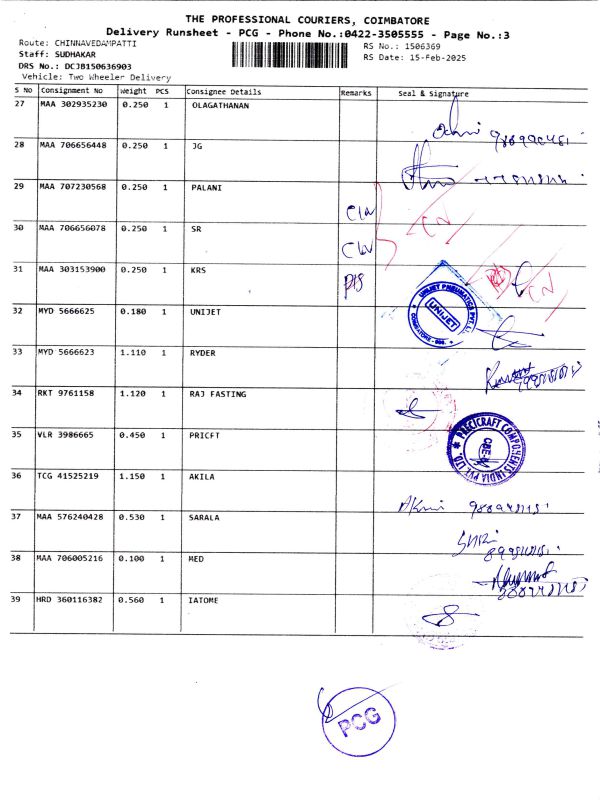 THE PROFESSIONAL COURIERS, COIMBATORE
Delivery Runsheet - PCG - Phone No.:0422-3505555 - Page No.:3
Route: CHINNAVEDAMPATTI
RS No.: 1506369
Staff: SUDHAKAR
RS Date: 15-Feb-2025
DRS No.: DCJB150636903
Vehicle: Two Wheeler Delivery
S No Consignment No Weight PCS Consignee Details Remarks Seal & Signature
27 MAA 302935230 0.250 1 OLAGATHANAN
28 MAA 706656448 0.250 1 JG
29 MAA 707230568 0.250 1 PALANI
CN
30 MAA 706656078 0.250 1 SR
31 MAA 303153900 0.250 1 KRS
CN
32 MYD 5666625 0.180 1 UNIJET
UNIJET PNEUMATICS PVT. LTD.
UNIJET
33 MYD 5666623 1.110 1 RYDER
34 RKT 9761158 1.120 1 RAJ FASTING
35 VLR 3986665 0.450 1 PRICFT
PRECICRAFT COMPONENTS INDIA PVT. LTD.
36 TCG 41525219 1.150 1 AKILA
37 MAA 576240428 0.530 1 SARALA
38 MAA 706005216 0.100 1 MED
39 HRD 360116382 0.560 1 IATOME
PCG